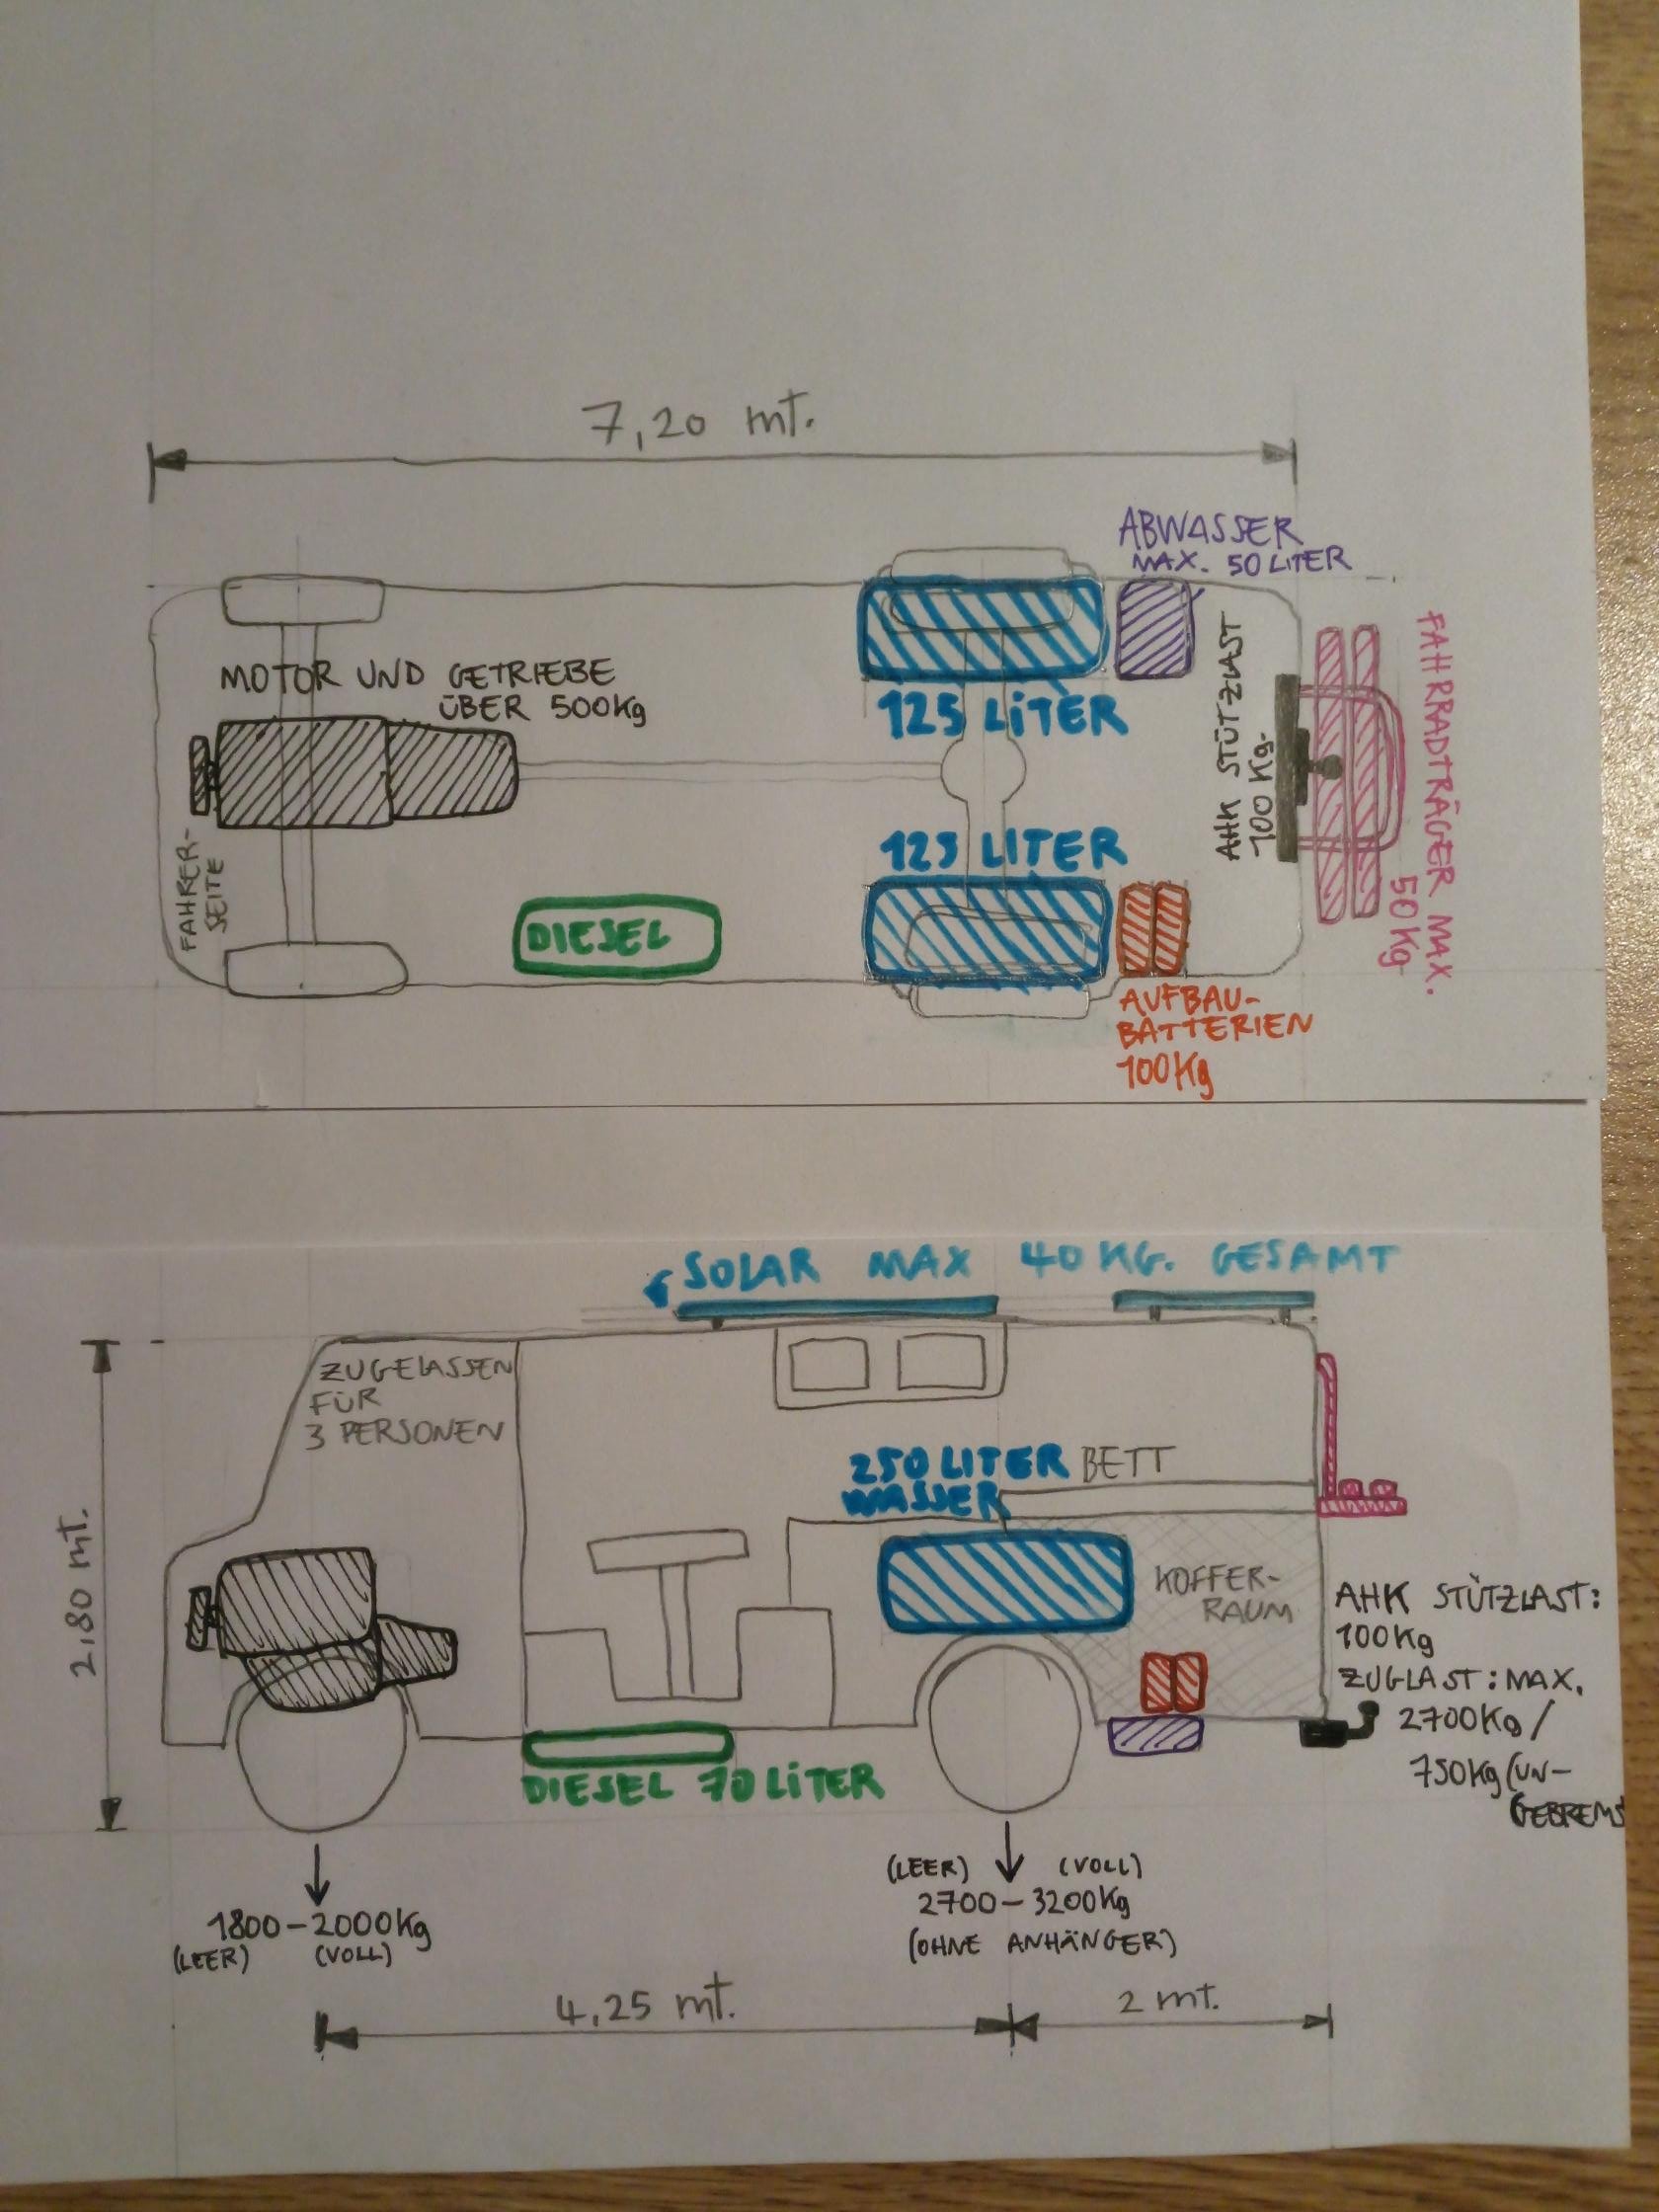 7,20 mt.
ABWASSER
MAX. 50 LITER
MOTOR UND GETRIEBE
ÜBER 500Kg
125 LITER
AHK STÜTZLAST
100 Kg.
FAHRRADTRÄGER MAX.
50Kg
FAHRER-
SEITE
DIESEL
125 LITER
AUFBAU-
BATTERIEN
100Kg
SOLAR MAX 40 KG. GESAMT
ZUGELASSEN
FÜR
3 PERSONEN
250 LITER
WASSER
BETT
2,80 mt.
KOFFER-
RAUM
AHK STÜTZLAST:
100Kg
ZUGLAST: MAX.
2700Kg/
750Kg (UN-
GEBREMS
DIESEL 70 LITER
1800-2000Kg
(LEER) (VOLL)
(LEER) (VOLL)
2700-3200Kg
(OHNE ANHÄNGER)
4,25 mt.
2 mt.